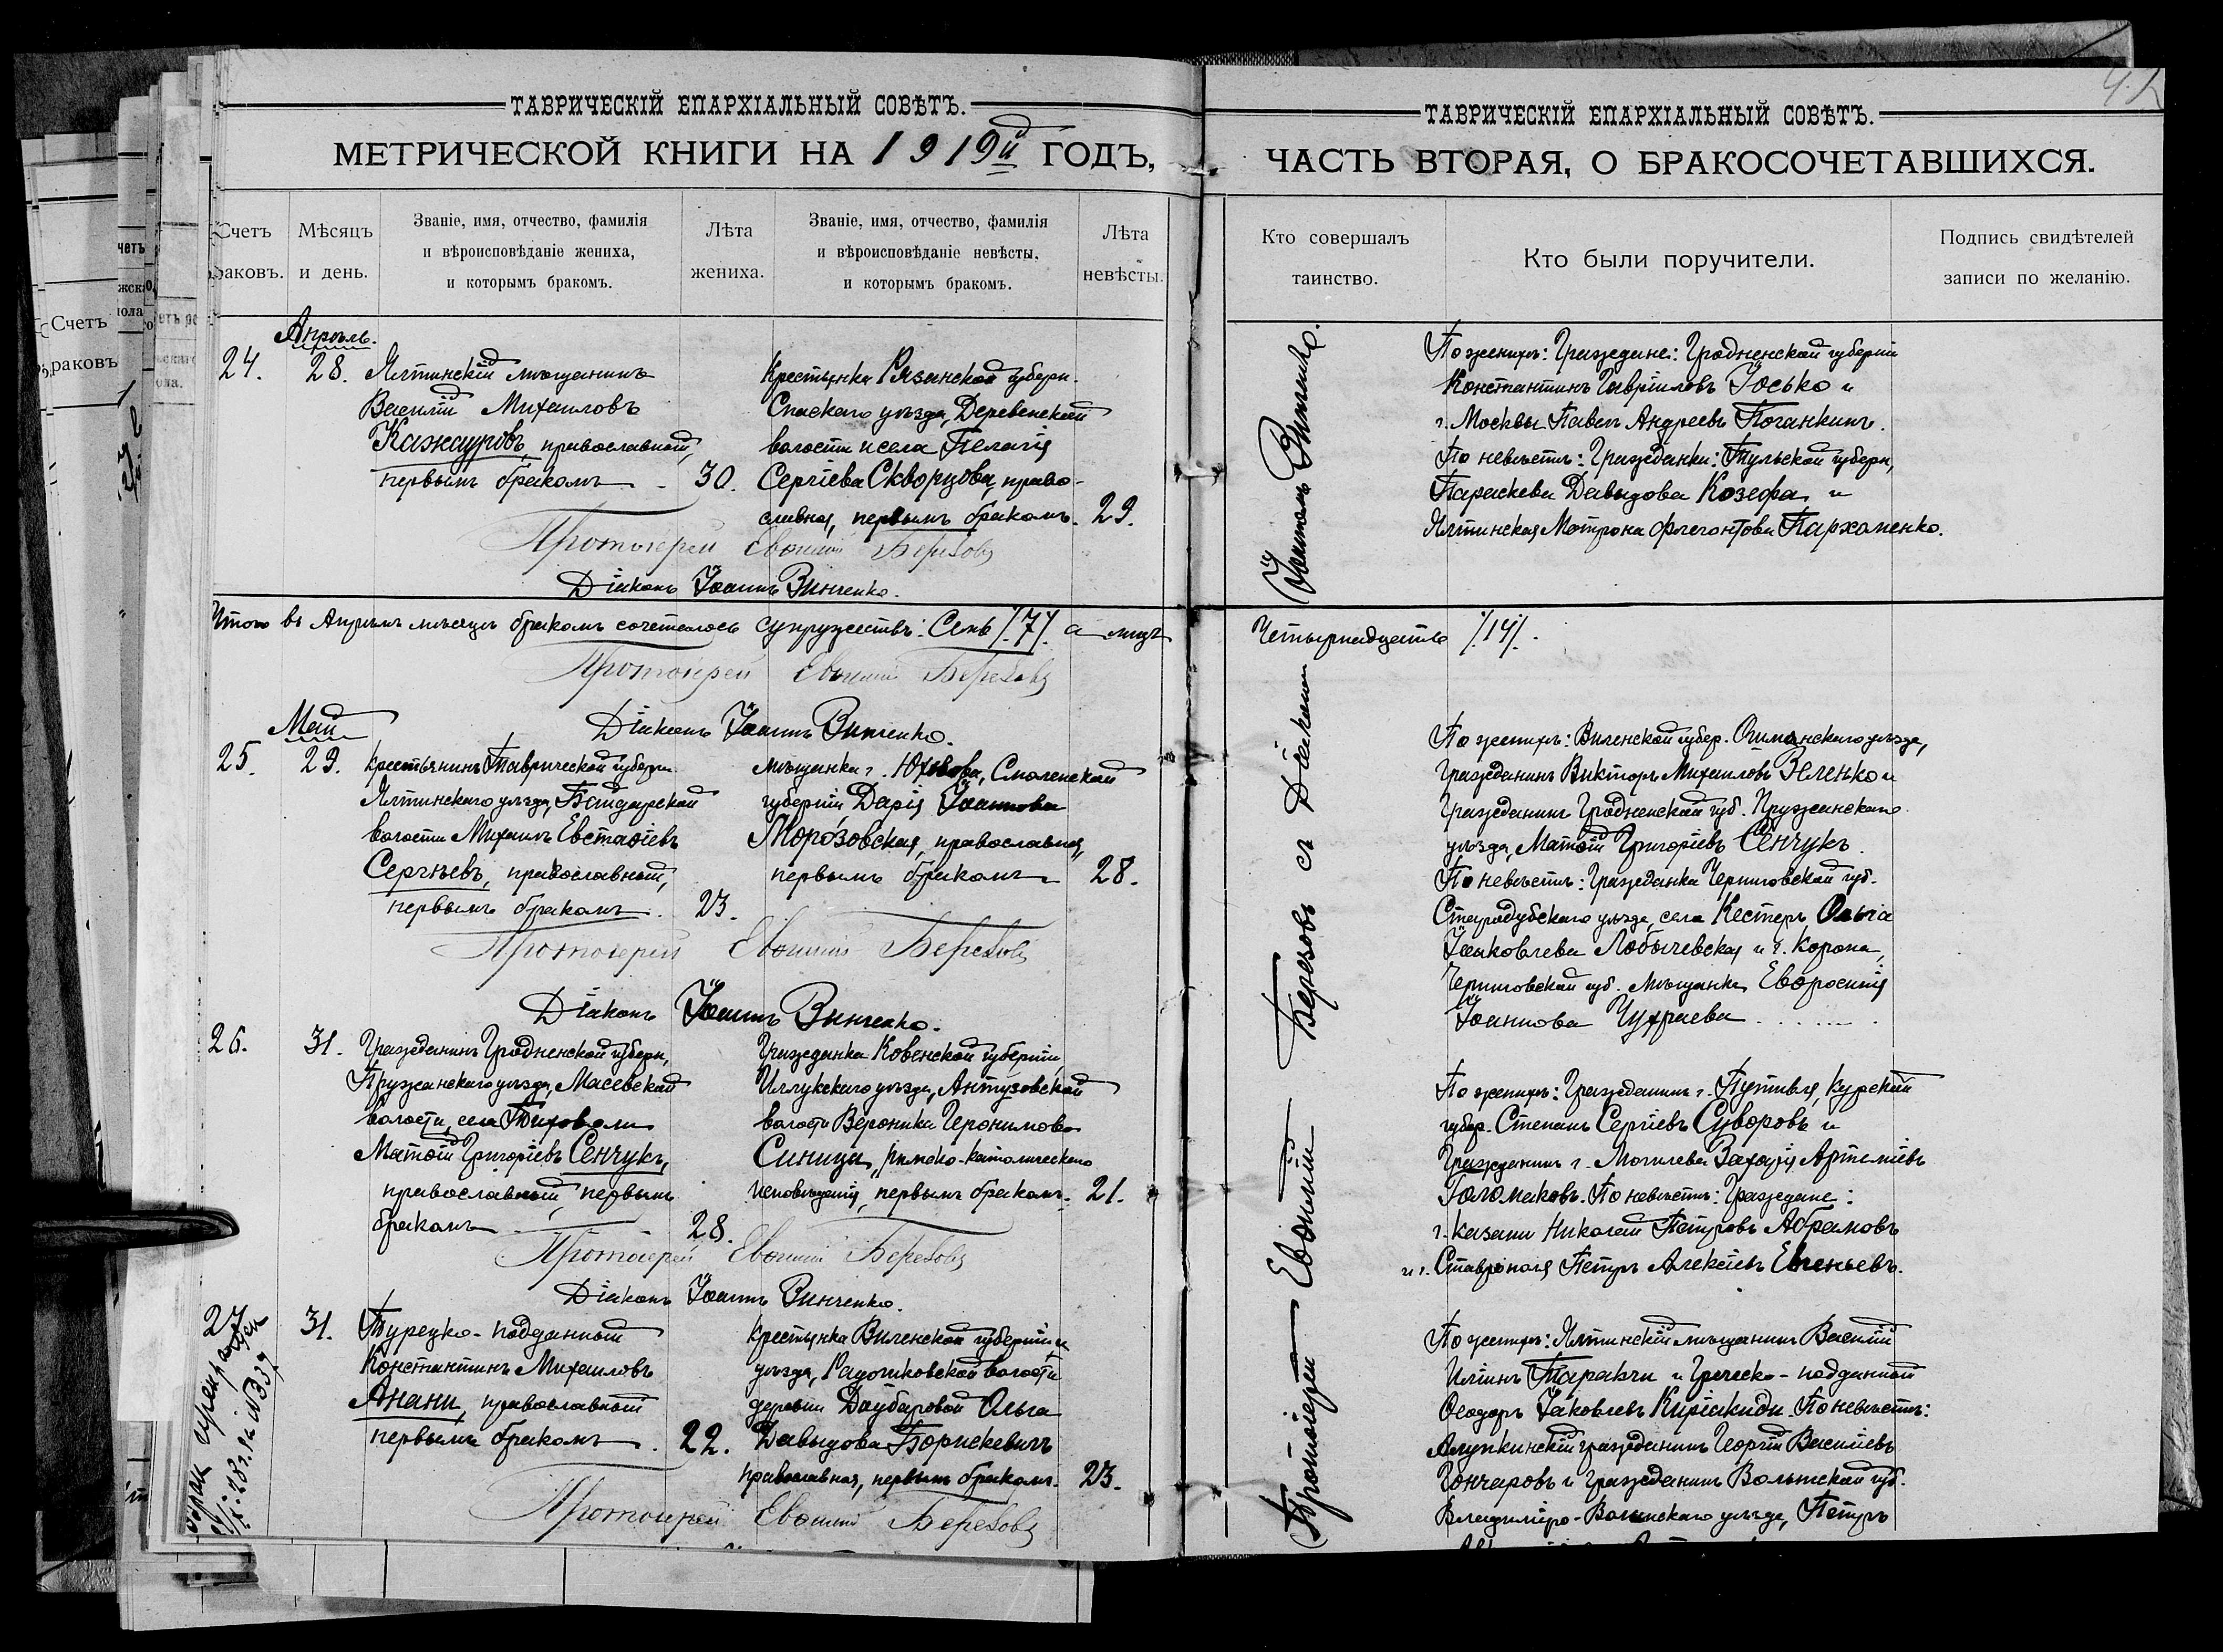 ТАВРИЧЕСКІЙ ЕПАРХІАЛЬНЫЙ СОВѢТЪ.
МЕТРИЧЕСКОЙ КНИГИ НА 1919й ГОДЪ,
Счетъ браковъ.
Мѣсяцъ и день.
Званіе, имя, отчество, фамилія
и вѣроисповѣданіе жениха,
и которымъ бракомъ.
Лѣта
жениха.
Званіе, имя, отчество, фамилія
и вѣроисповѣданіе невѣсты,
и которымъ бракомъ.
Лѣта
невѣсты.
Апрѣль.
24.
28.
Ялтинскій мѣщанинъ
Василій Михаиловъ
Кажауровъ, православный,
первымъ бракомъ
30.
Крестьянка Рязанской губерн.
Спаскаго уѣзда, Деревенской
волости и села Пелагія
Сергіева Скворцова, право-
славная, первымъ бракомъ.
29.
Протоіерей Евѳимій Березовъ
Діаконъ Іоаннъ Винченко.
Итого въ Апрѣлѣ мѣсяцѣ бракомъ сочеталось супружествъ: Семь /7/. а лицъ
Протоіерей Евѳимій Березовъ
Діаконъ Іоаннъ Винченко.
Май
25.
29.
Крестьянинъ Таврической губерн.
Ялтинскаго уѣзда, Байдарской
волости Михаилъ Евстаѳіевъ
Сергѣевъ, православный,
первымъ бракомъ.
23.
мѣщанка г. Юхнова, Смоленской
губерніи Дарія Іоаннова
Морозовская, православная,
первымъ бракомъ
28.
Протоіерей Евѳимій Березовъ
Діаконъ Іоаннъ Винченко.
26.
31.
Гражданинъ Гродненской губерн,
Пружанскаго уѣзда, Масевской
волости, села Тиховоли
Матѳій Григоріевъ Сенчукъ,
православный, первымъ
бракомъ
28.
Гражданка Ковенской губерніи,
Иллукскаго уѣзда, Антузовской
волости Вероника Іеронимова
Синица, римско-католическаго
исповѣданія, первымъ бракомъ.
21.
Протоіерей Евѳимій Березовъ
Діаконъ Іоаннъ Винченко.
27
31.
Турецко-подданный
Константинъ Михаиловъ
Анани, православный
первымъ бракомъ.
22.
Крестьянка Виленской губерніи и
уѣзда, Радошковской волости
деревни Даубаровой Ольга
Давыдова Борискевичъ
православная, первымъ бракомъ.
23.
Протоіерей Евѳимій Березовъ
ТАВРИЧЕСКІЙ ЕПАРХІАЛЬНЫЙ СОВѢТЪ.
ЧАСТЬ ВТОРАЯ, О БРАКОСОЧЕТАВШИХСЯ.
Кто совершалъ
таинство.
Кто были поручители.
Подпись свидѣтелей
записи по желанію.
Протоіерей Евѳимій Березовъ съ Діакономъ Іоанномъ Винченко.
По женихѣ: Граждане: Гродненской губерніи
Константинъ Гавріиловъ Іосько и
г. Москвы Павелъ Андреевъ Поганкинъ.
По невѣстѣ: Гражданки: Тульской губерн,
Параскева Давыдова Козефа и
Ялтинская Матрона Флегонтова Пархоменко.
Четырнадцать /14/.
По женихѣ: Виленской губер. Ошмянскаго уѣзда,
Гражданинъ Викторъ Михаиловъ Зеленько и
Гражданинъ Гродненской губ. Пружанскаго
уѣзда, Матѳій Григоріевъ Сенчукъ.
По невѣстѣ: Гражданка Черниговской губ.
Стародубскаго уѣзда, села Кестеръ Ольга
Іаковлева Лобычевская и г. Короча,
Черниговской губ. мѣщанка Евфросинія
Іоаннова Чухраева
По женихѣ: Гражданинъ г. Путивля, Курской
губер. Степанъ Сергіевъ Суворовъ и
Гражданинъ г. Могилева Захарія Артеміевъ
Голомаковъ. По невѣстѣ: Граждане:
г. Казани Николай Петровъ Абрамовъ
и г. Ставрополя Петръ Алексіевъ Евгеньевъ.
По женихѣ: Ялтинскій мѣщанинъ Василій
Иліинъ Таракчи и Греческо-подданный
Ѳеодоръ Іаковлевъ Киріакиди. По невѣстѣ:
Алупкинскій гражданинъ Георгій Василіевъ
Гончаровъ и гражданинъ Волынской губ.
Владиміро-Волынскаго уѣзда, Петръ